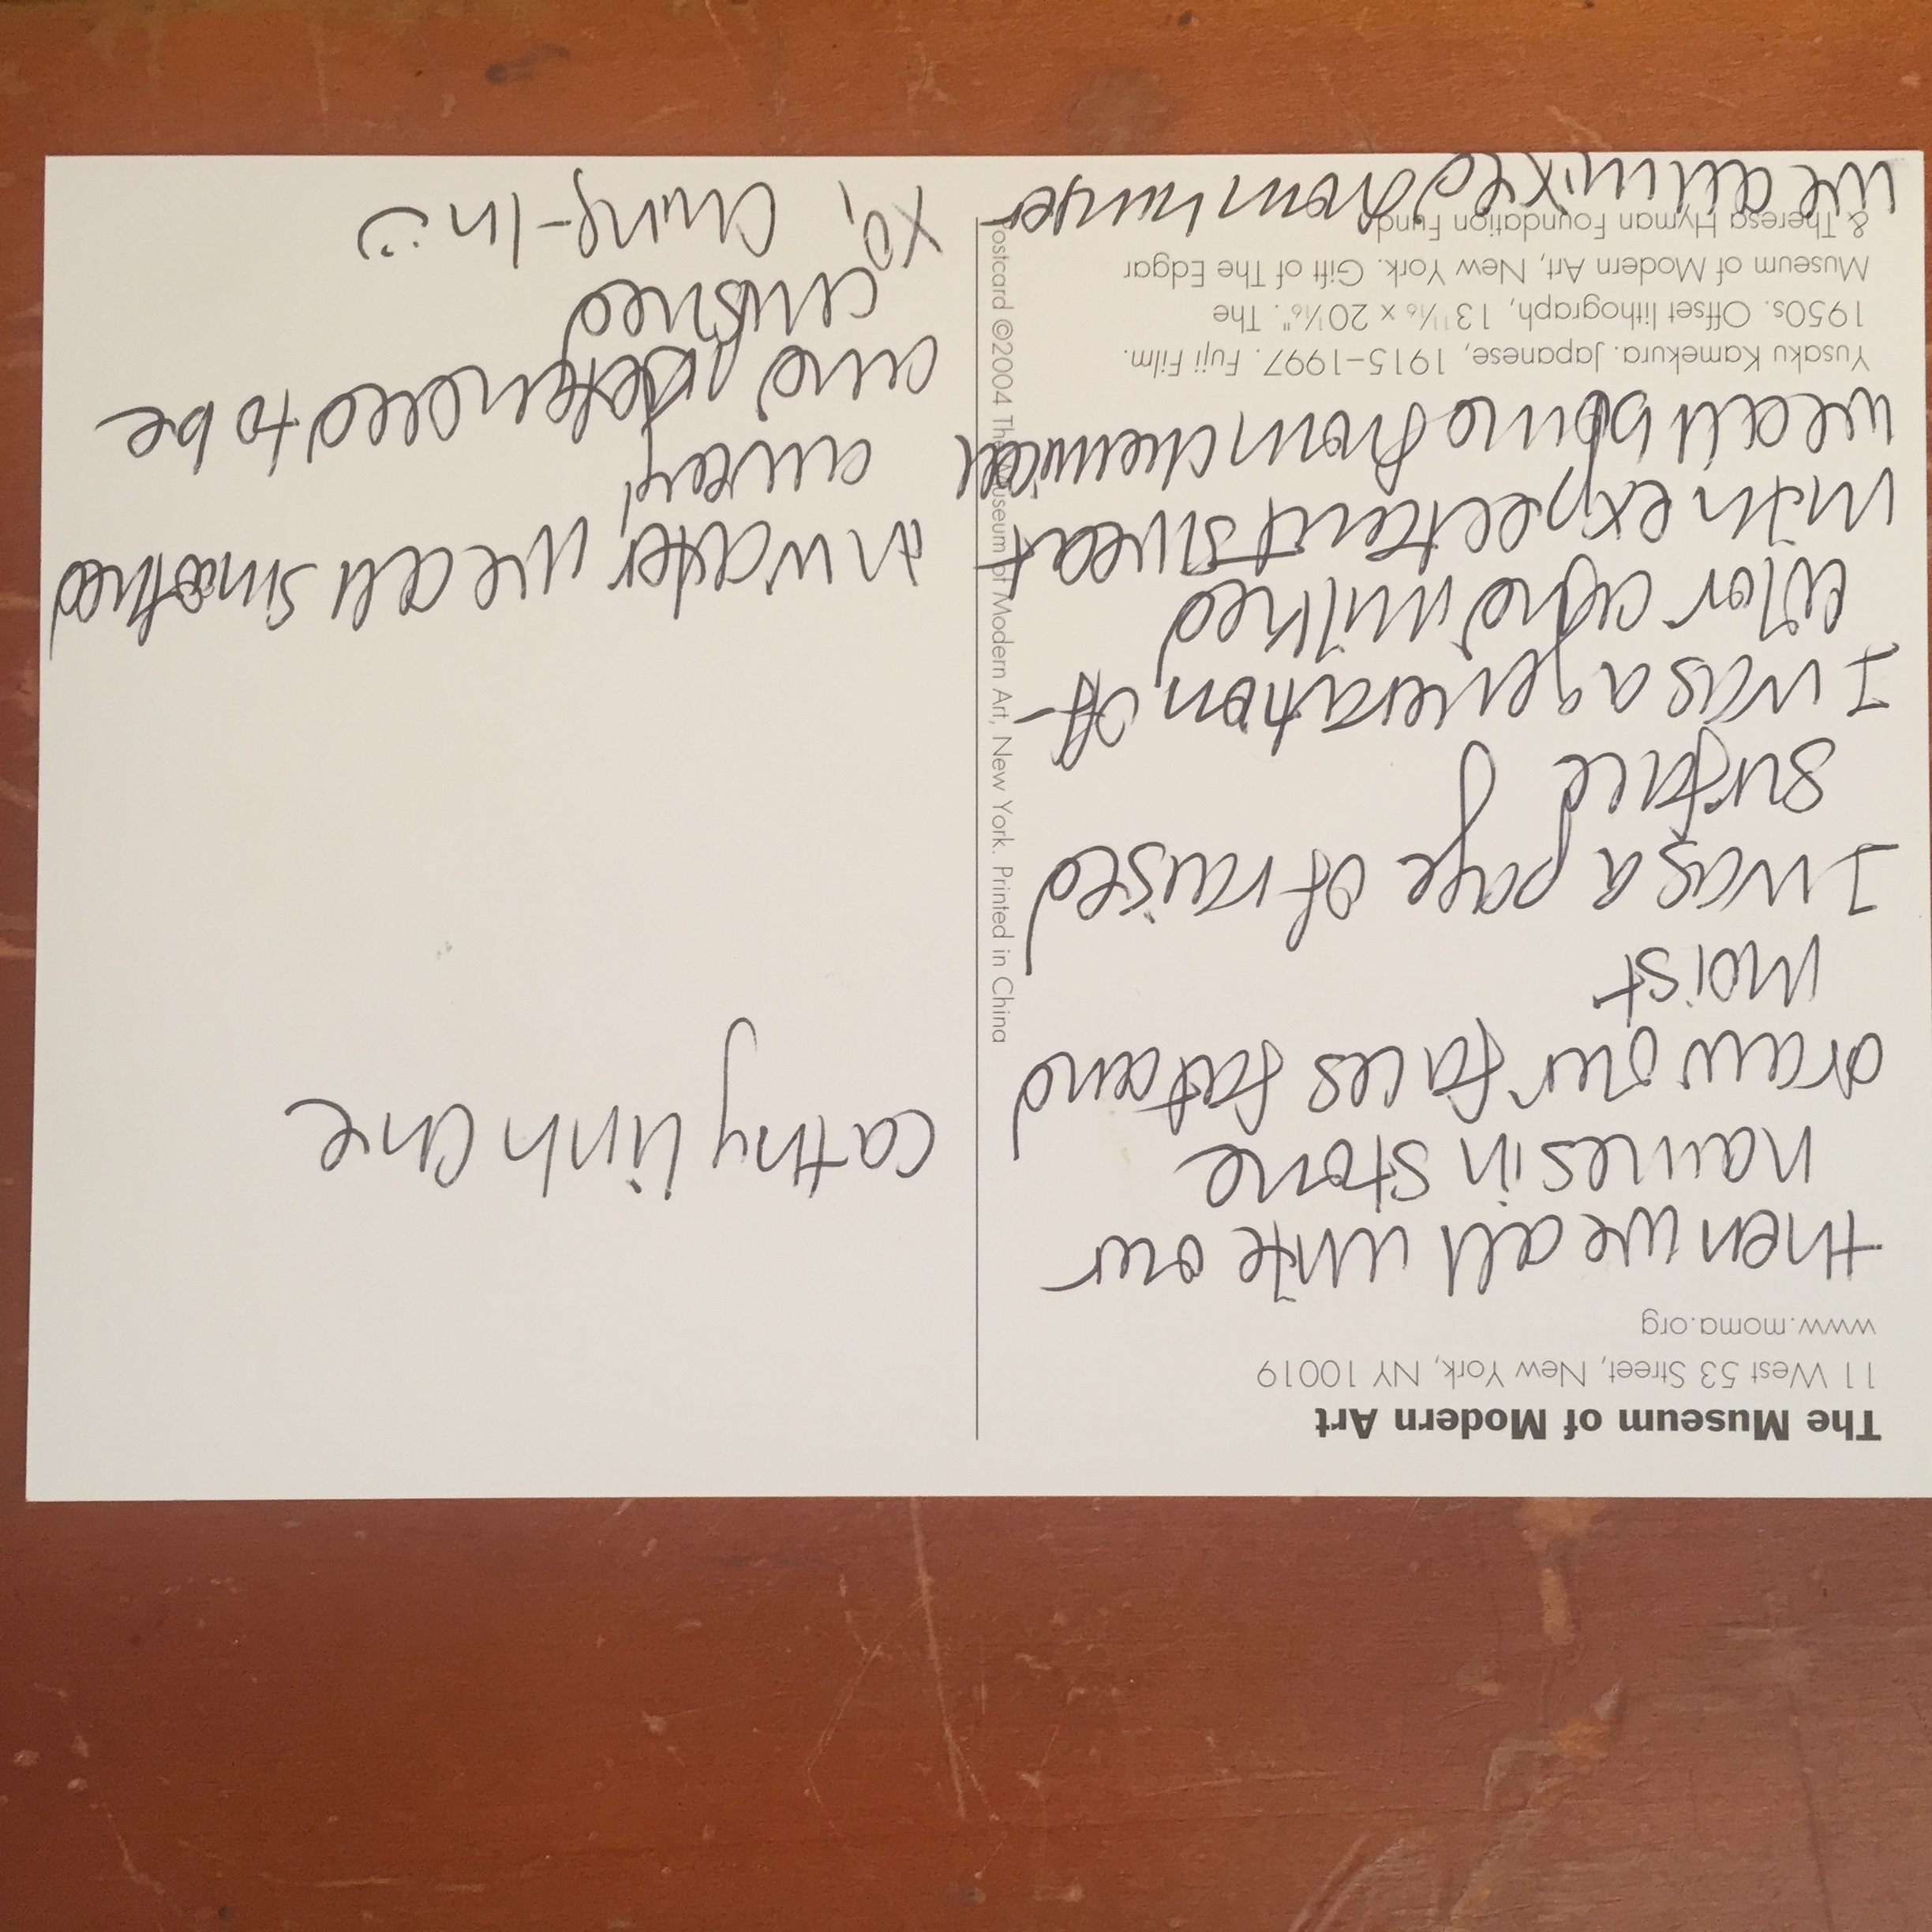 The Museum of Modern Art
11 West 53 Street, New York, NY 10019
www.moma.org
then we all write our
names in stone
draw our faces fat and
moist
I was a page of raised
surface
I was a generation of
color and milked
with expectant sweat
we all bound from chemical
Yusaku Kamekura. Japanese, 1915–1997. Fuji Film.
1950s. Offset lithograph, 13 11/16 x 20 1/16". The
Museum of Modern Art, New York. Gift of The Edgar
& Theresa Hyman Foundation Fund
we all mixed from hunger
Postcard ©2004 The Museum of Modern Art, New York. Printed in China
cathy linh che
in water, we all smoothed
away,
and pretended to be
crushed
xo, Ching-In :)